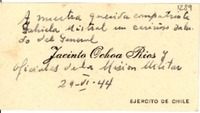 1289
A nuestra querida compatriota
Gabriela Mistral un cariñoso salu-
do del General
Jacinto Ochoa Ríos y
Oficiales de la Misión Militar
29-VI-44
EJERCITO DE CHILE